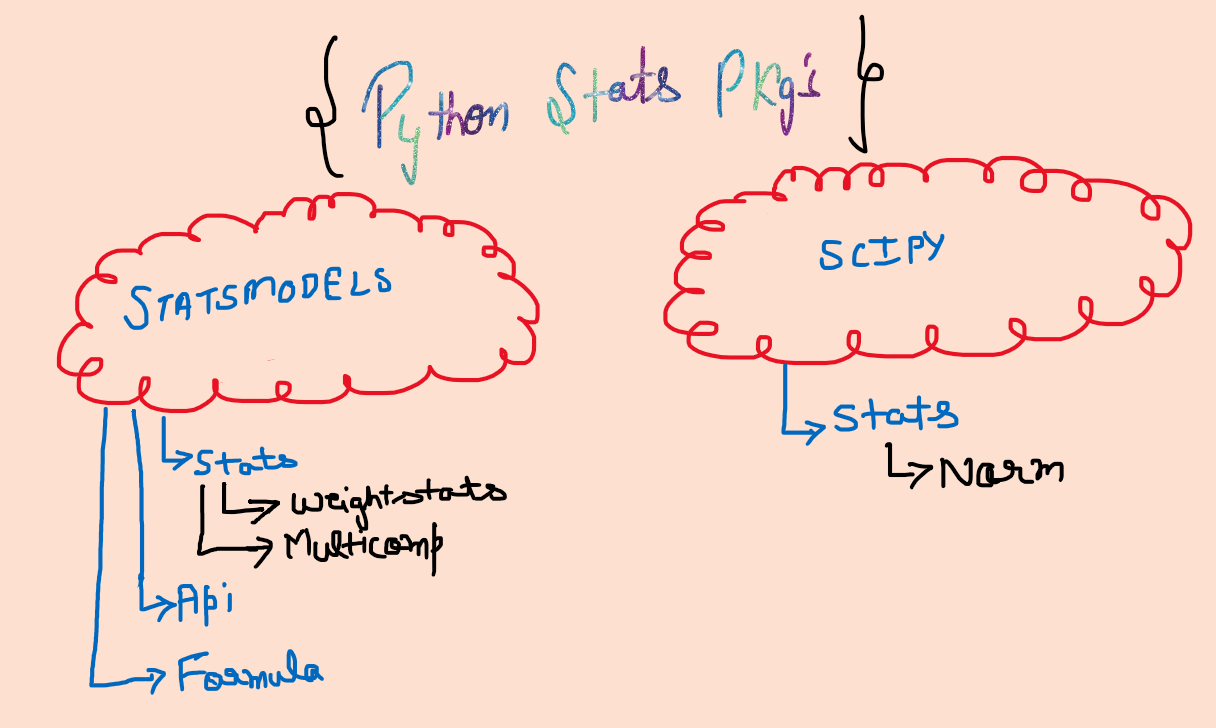 { Python Stats Pkg's }
STATSMODELS
Stats
Weightstats
Multicomp
Api
Formula
SCIPY
Stats
Norm